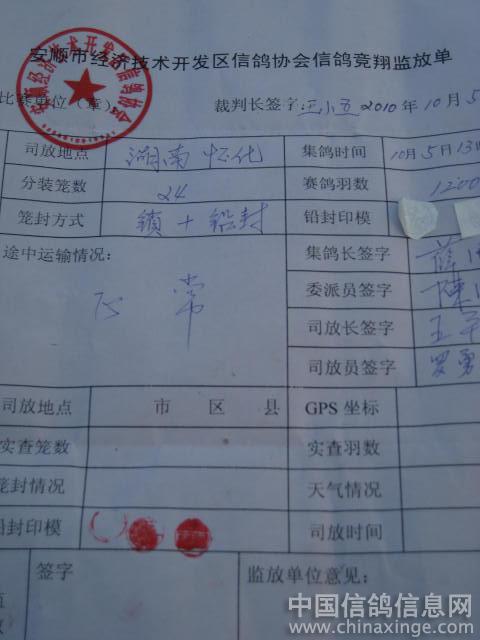 安顺市经济技术开发区信鸽协会信鸽竞翔监放单
比赛单位（章）： 裁判长签字：王小五 2010年10月5
司放地点 湖南怀化 集鸽时间 10月5日13
分装笼数 24 赛鸽羽数 1200
笼封方式 锁+铅封 铅封印模
途中运输情况： 集鸽长签字 薛
正常 委派员签字 陳
司放长签字 王
司放员签字 罗勇
司放地点 市 区 县 GPS 坐标
实查笼数 实查羽数
笼封情况 天气情况
铅封印模 司放时间
签字 监放单位意见：
中国信鸽信息网
www.chinaxinge.com